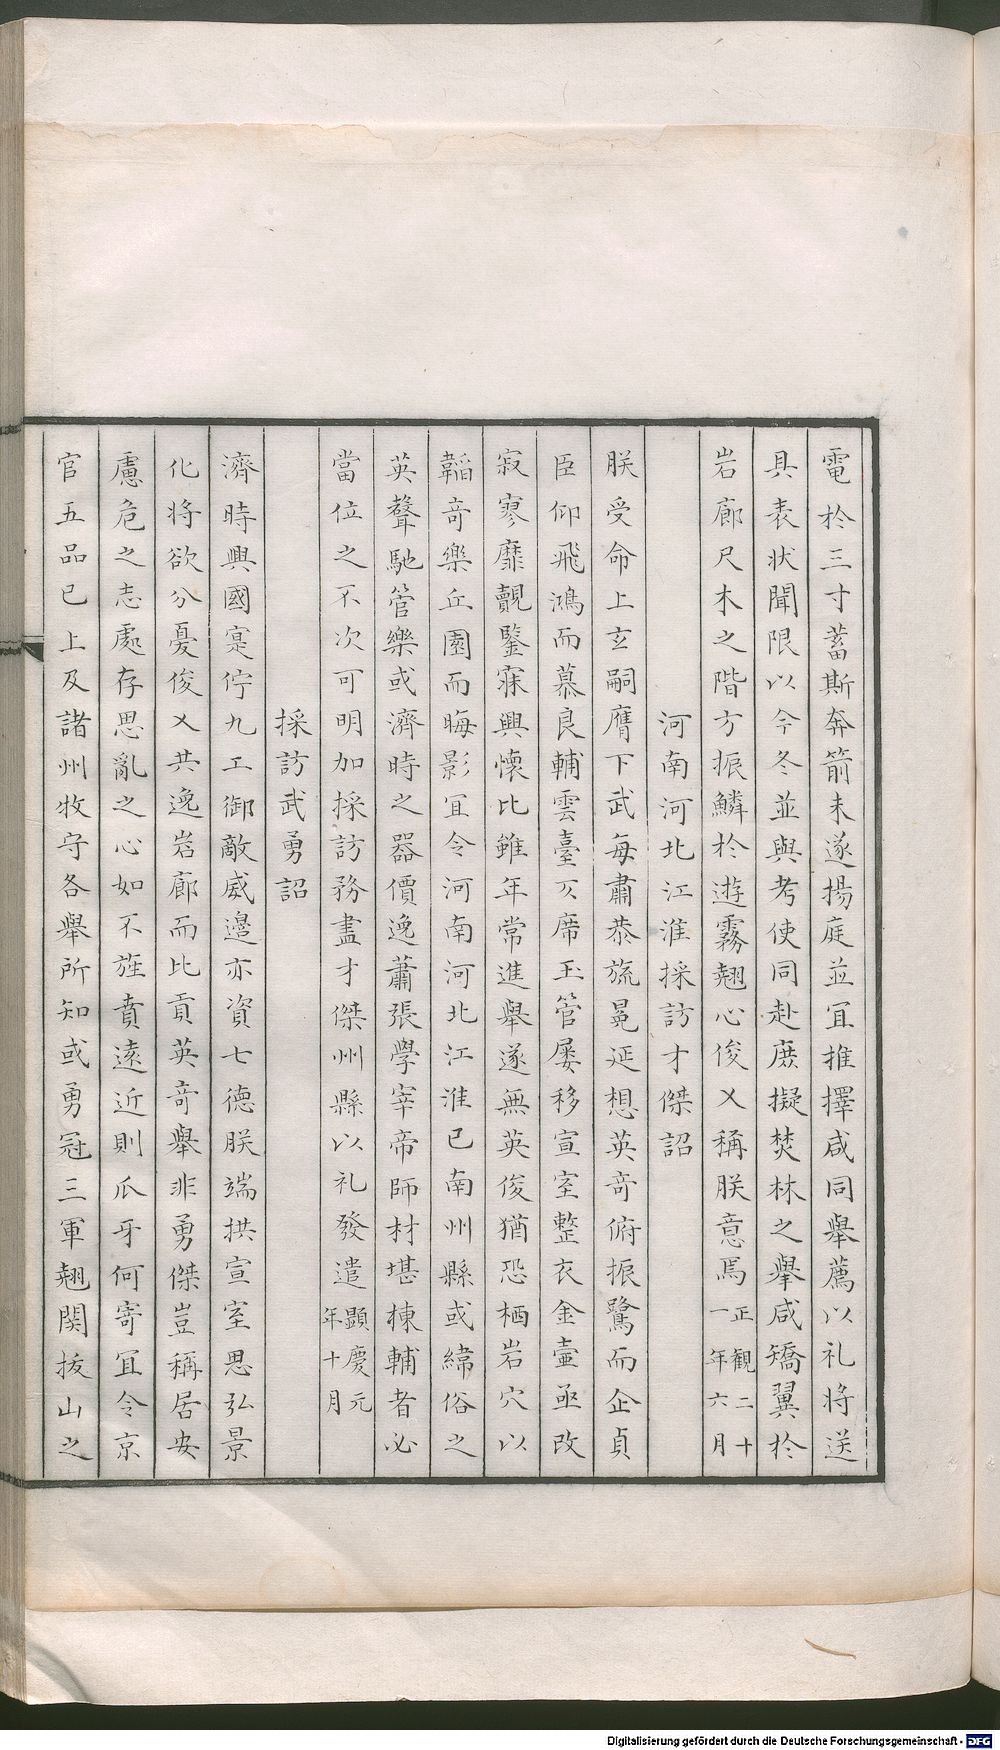 電於三寸蓄斯奔箭未遂揚庭並冝推擇咸同舉薦以礼将送
具表状聞限以今冬並與考使同赴庶擬焚林之舉咸矯翼於
岩廊尺木之階方振鱗於遊霧翹心俊乂稱朕意焉正觀二十一年六月
河南河北江淮採訪才傑詔
朕受命上玄嗣膺下武每肅恭旒冕延想英竒俯振鷺而企貞
臣仰飛鴻而慕良輔雲臺仄席玉管屡移宣室整衣金壷亟改
寂寥靡覿鑒寐興懷比雖年常進舉遂無英俊猶恐栖岩穴以
韜竒樂丘園而晦影冝令河南河北江淮已南州縣或緯俗之
英聲馳管樂或濟時之器價逸蕭張學宰帝師材堪棟輔者必
當位之不次可明加採訪務盡才傑州縣以礼發遣顯慶元年十月
採訪武勇詔
濟時興國寔佇九工御敵威邊亦資七德朕端拱宣室思弘景
化将欲分憂俊乂共逸岩廊而比貢英竒舉非勇傑豈稱居安
慮危之志處存思亂之心如不旌賁遠近則爪牙何寄冝令京
官五品已上及諸州牧守各舉所知或勇冠三軍翹関拔山之
Digitalisierung gefördert durch die Deutsche Forschungsgemeinschaft - DFG